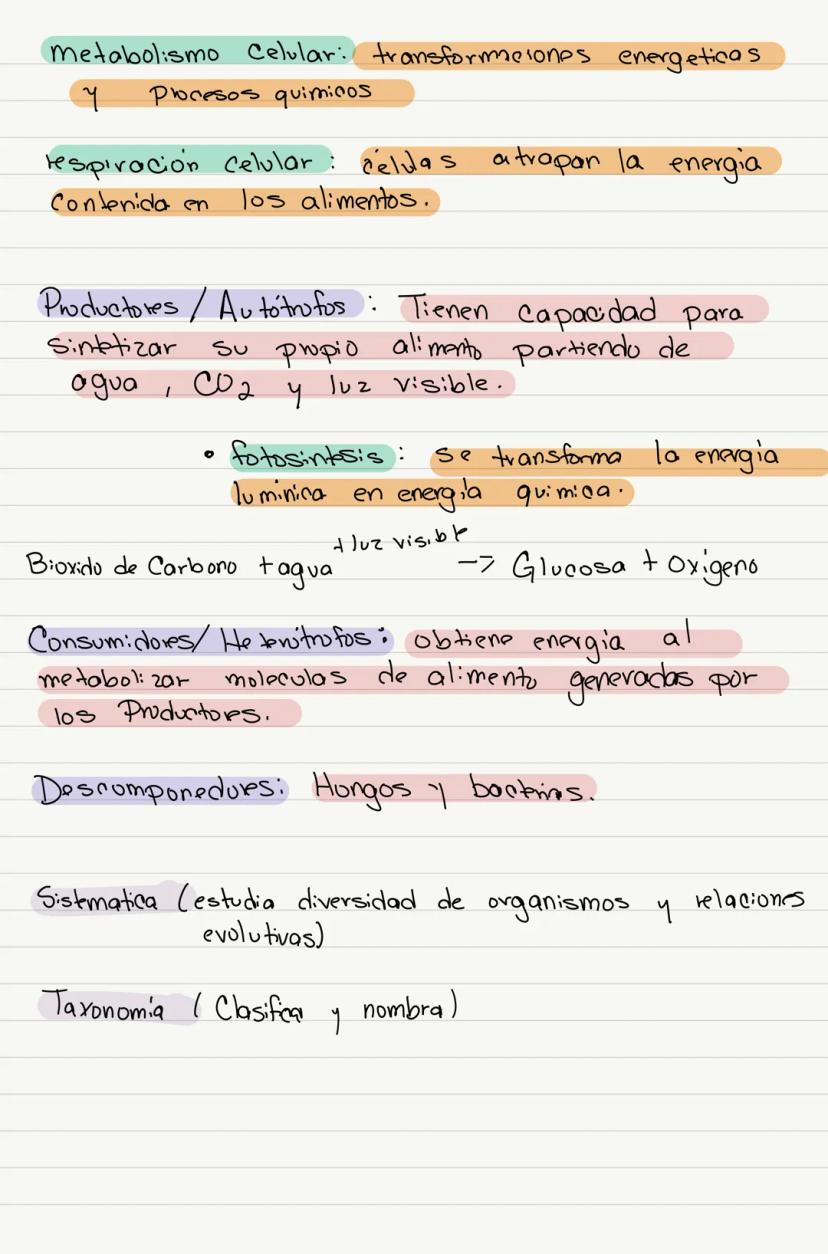 metabolismo celular: transformaciones energeticas
y Procesos quimicos
respiración celular: células atrapan la energia
contenida en los alimentos.
Productores / Autótrofos: Tienen capacidad para
sintetizar su propio alimento partiendo de
agua, CO2 y luz visible.
• fotosintesis: se transforma la energia
luminica en energia quimica.
+ luz visible
Bioxido de Carbono + agua -> Glucosa + Oxigeno
Consumidores/ Heterótrofos: obtiene energia al
metabolizar moleculas de alimento generadas por
los Productores.
Descomponedores: Hongos y bacterias.
Sistematica (estudia diversidad de organismos y relaciones
evolutivas)
Taxonomía (Clasifica y nombra)